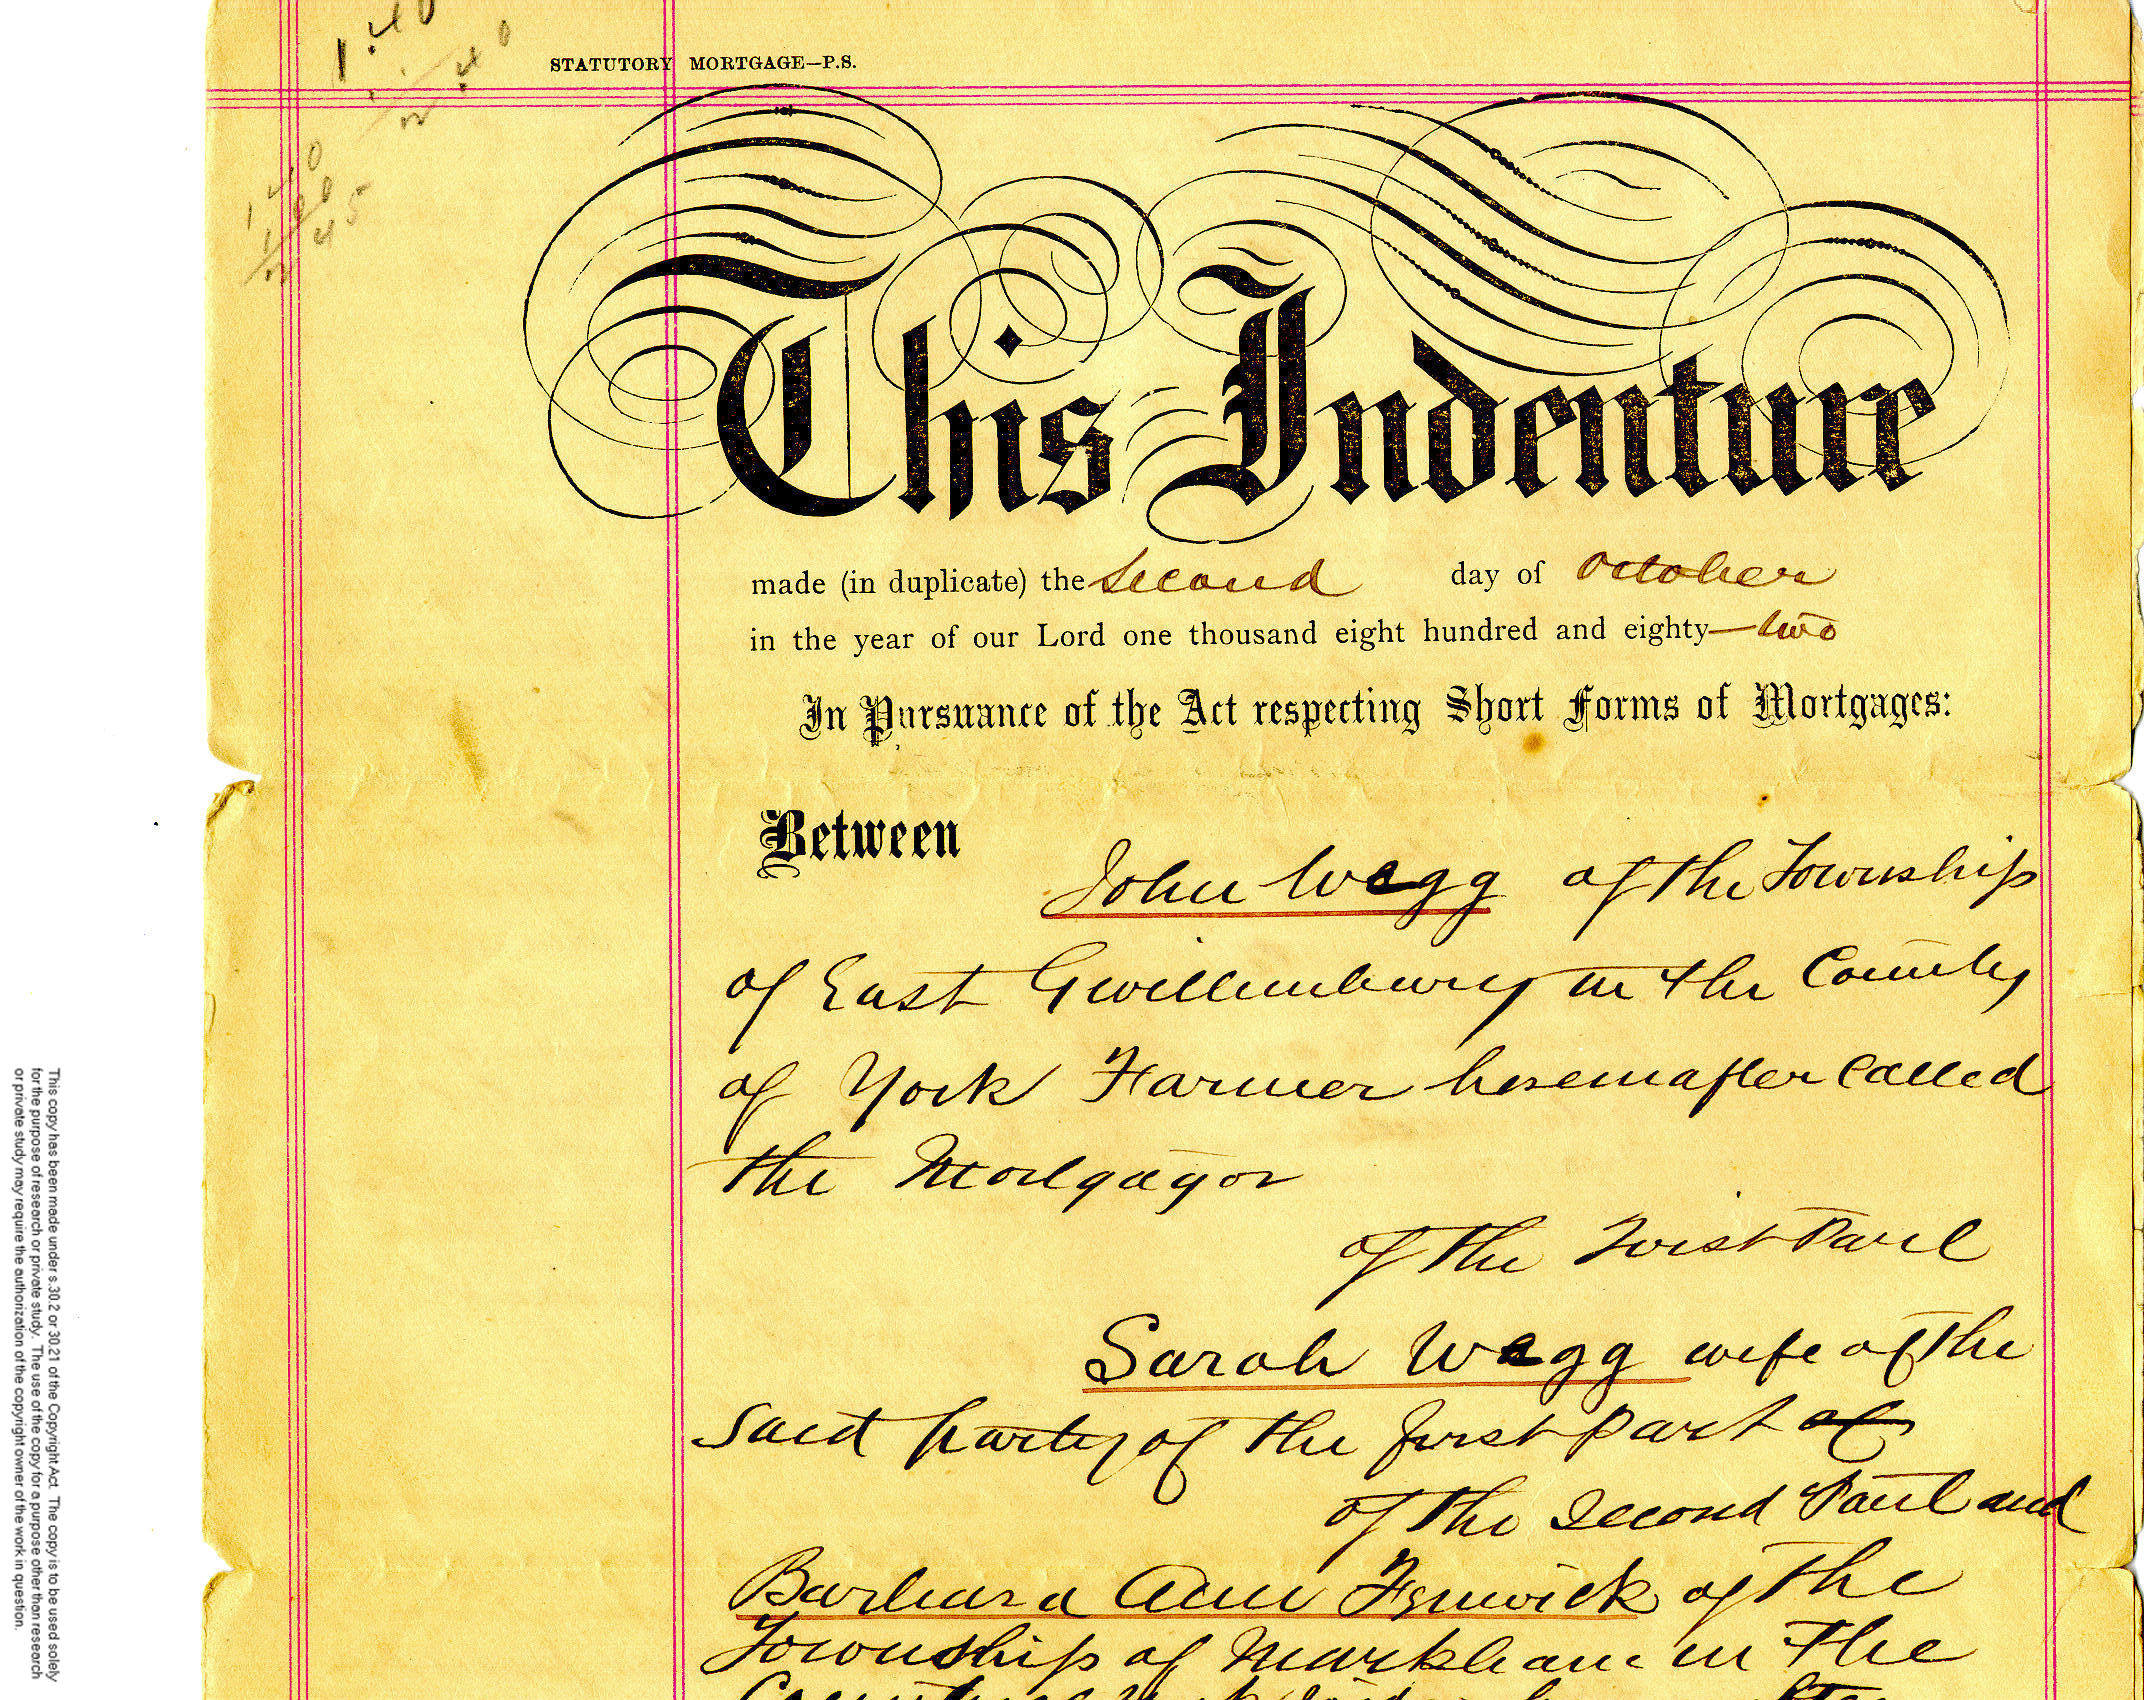 1.40
.40
STATUTORY MORTGAGE—P.S.
This Indenture
made (in duplicate) the Second day of October
in the year of our Lord one thousand eight hundred and eighty—two
In Pursuance of the Act respecting Short Forms of Mortgages:
Between
John Wegg of the Township
of East Gwillimbury in the County
of York Farmer hereinafter called
the Mortgagor
of the First Part
Sarah Wegg wife of the
said party of the first part of
of the Second Part and
Barbara Ann Fenwick of the
Township of Markham in the
This copy has been made under s.30.2 or 30.21 of the Copyright Act. The copy is to be used solely
for the purpose of research or private study. The use of the copy for a purpose other than research
or private study may require the authorization of the copyright owner of the work in question.